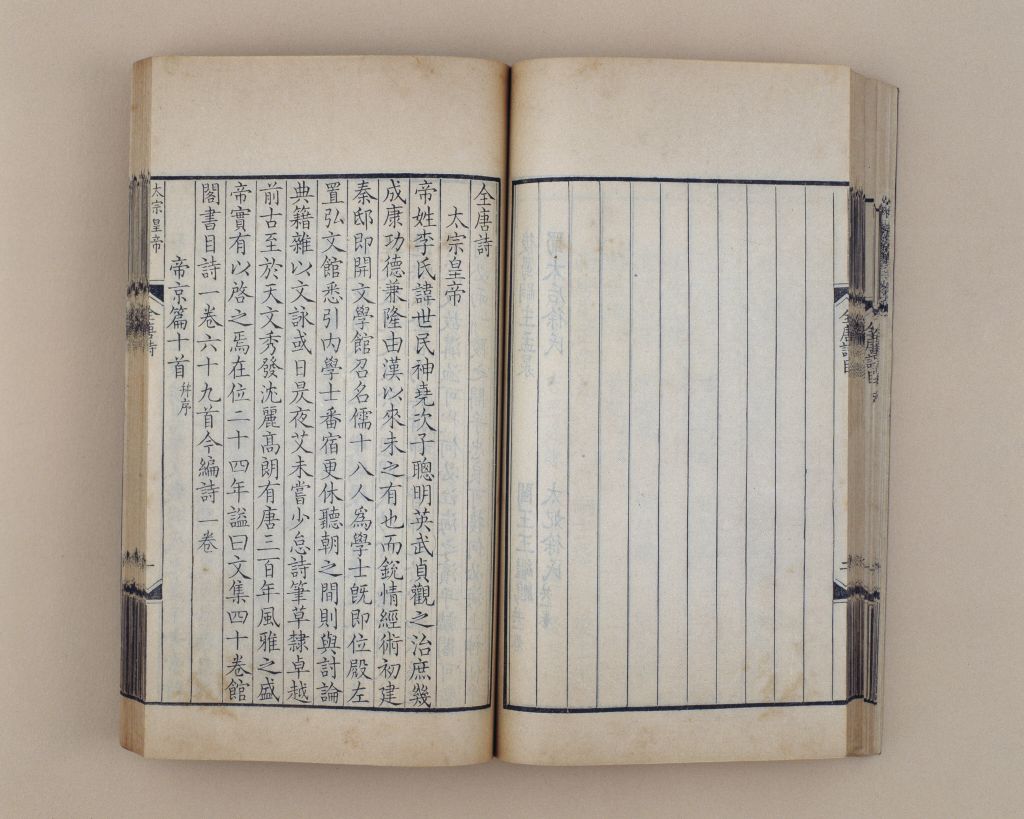 全唐詩
太宗皇帝
帝姓李氏諱世民神堯次子聰明英武貞觀之治庶幾
成康功德兼隆由漢以來未之有也而銳情經術初建
秦邸即開文學館召名儒十八人爲學士旣即位殿左
置弘文館悉引内學士番宿更休聽朝之間則與討論
典籍雜以文詠或日昃夜艾未嘗少怠詩筆草隸卓越
前古至於天文秀發沈麗高朗有唐三百年風雅之盛
帝實有以啓之焉在位二十四年諡曰文集四十卷館
閣書目詩一卷六十九首今編詩一卷
帝京篇十首 幷序
太宗皇帝
全唐詩
一
全唐詩目
全唐詩目